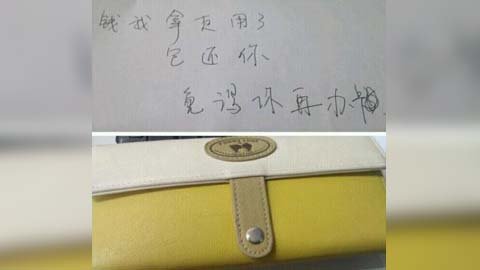 钱我拿去用了
包还你
免得你再办